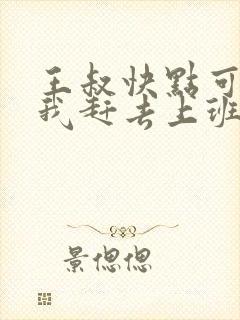 王叔快點可
我赶去上班
景偲偲